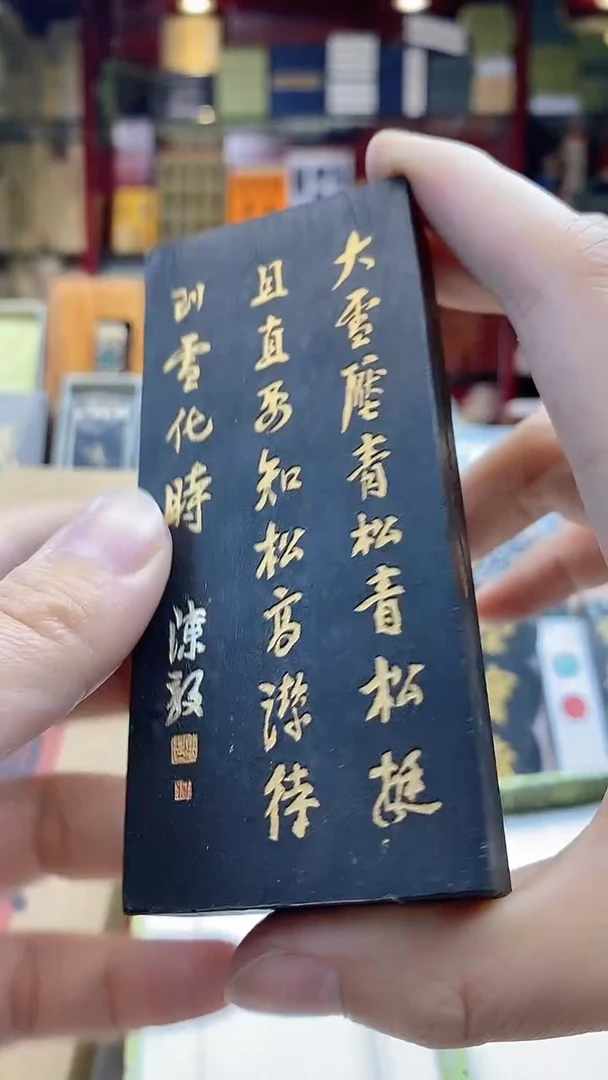 大雪壓青松青松挺
且直要知松高潔待
到雪化時
陳毅